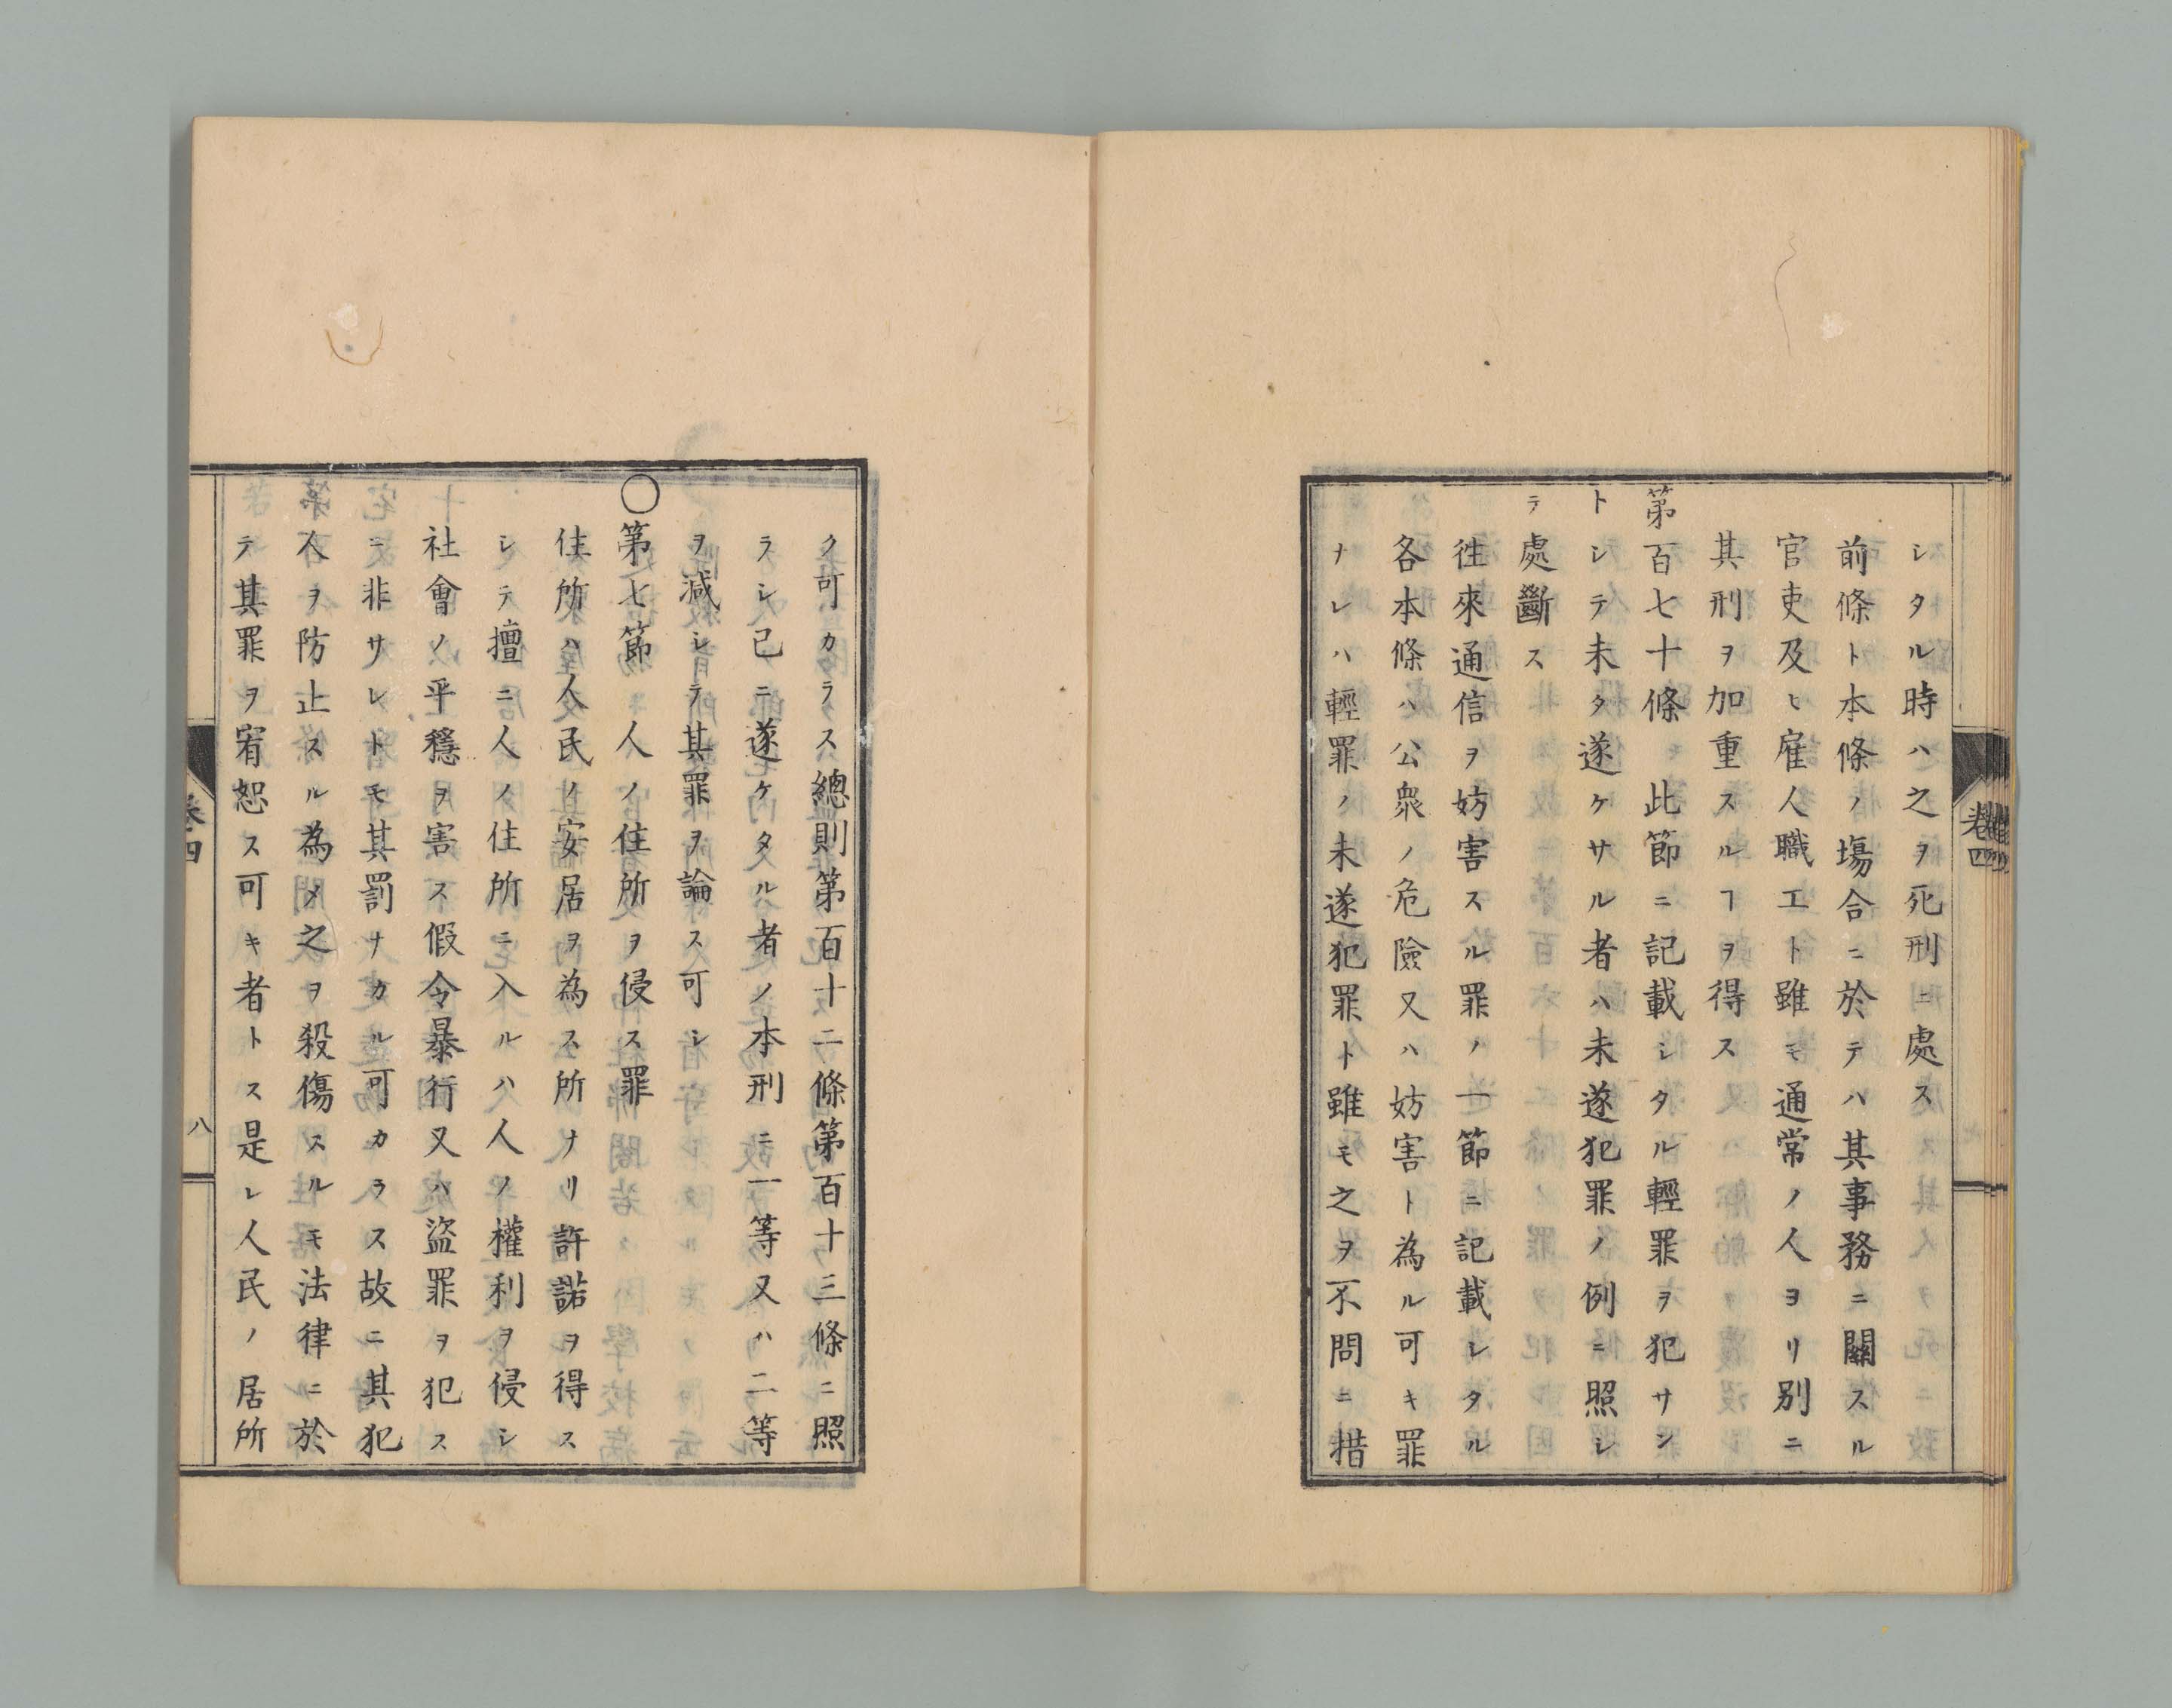 シタル時ハ之ヲ死刑ニ處ス
前條ト本條ノ塲合ニ於テハ其事務ニ關スル
官吏及ヒ雇人職工ト雖モ通常ノ人ヨリ別ニ
其刑ヲ加重スルヿヲ得ス
第百七十條　此節ニ記載シタル輕罪ヲ犯サン
トシテ未タ遂ケサル者ハ未遂犯罪ノ例ニ照シ
テ處斷ス
徃來通信ヲ妨害スル罪ノ一節ニ記載シタル
各本條ハ公衆ノ危險又ハ妨害ト為ル可キ罪
ナレハ輕罪ノ未遂犯罪ト雖モ之ヲ不問ニ措
卷四
ク可カラス總則第百十二條第百十三條ニ照
ラシ已ニ遂ケタル者ノ本刑ニ一等又ハ二等
ヲ減シテ其罪ヲ論ス可シ
〇第七節　人ノ住所ヲ侵ス罪
住所ハ人民ノ安居ヲ為ス所ナリ許諾ヲ得ス
シテ擅ニ人ノ住所ニ入ルハ人ノ權利ヲ侵シ
社會ノ平穩ヲ害ス假令暴行又ハ盜罪ヲ犯ス
ニ非サレトモ其罰ナカル可カラス故ニ其犯
人ヲ防止スル為メ之ヲ殺傷スルモ法律ニ於
テ其罪ヲ宥恕ス可キ者トス是レ人民ノ居所
卷四
八